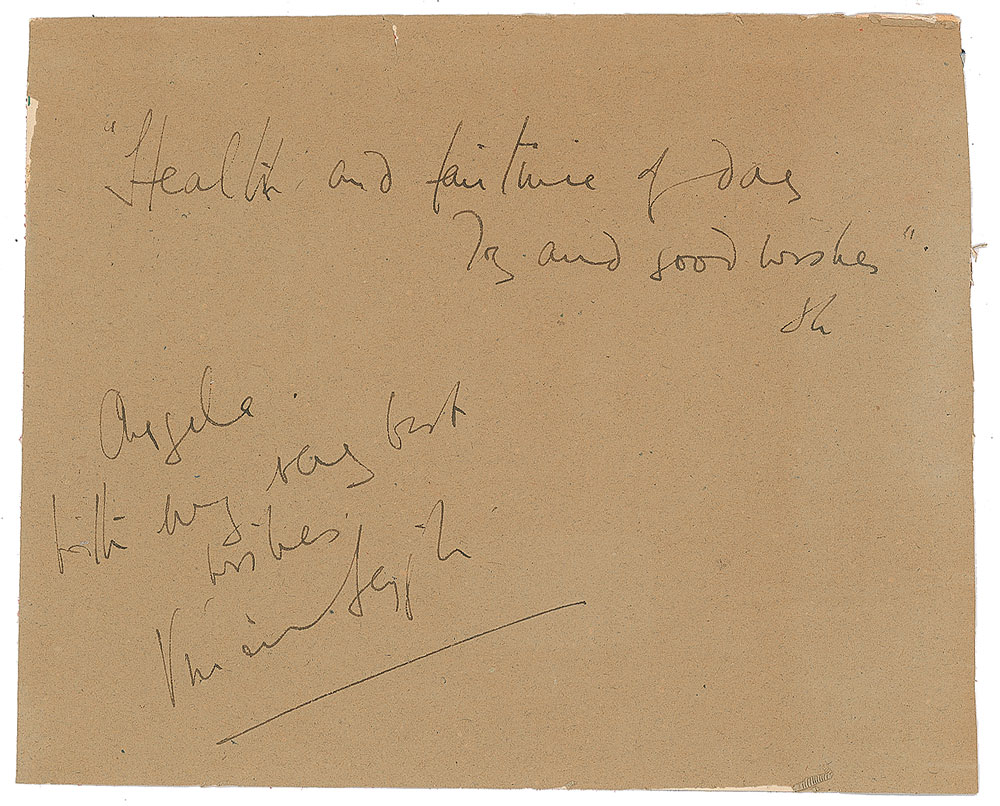 "Health and fair time of day
Joy and good wishes".
Sh
Angela.
with my very best
wishes
Vivien Leigh